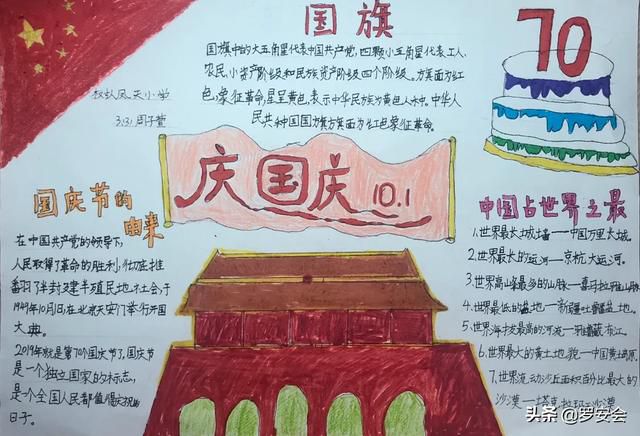 国旗
国旗中的大五角星代表中国共产党,四颗小五角星代表工人、
农民,小资产阶级和民族资产阶级四个阶级。旗面为红
色,象征革命,星呈黄色,表示中华民族为黄色人种。中华人
民共和国国旗旗面为红色,象征革命。
70
庆国庆 10.1
国庆节的
由来
在中国共产党的领导下,
人民取得了革命的胜利,彻底推
翻了半封建半殖民地社会于
1949年10月1日,在北京天安门举行开国
大典。
2019年就是第70个国庆节了,国庆节
是一个独立国家的标志,
是一个全国人民都值得庆祝的
日子。
中国占世界之最
1.世界最长城墙——中国万里长城。
2.世界最长的运河——京杭大运河。
3.世界高山峰最多的山脉——喜马拉雅山脉
4.世界最低的盆地——新疆吐鲁番盆地。
5.世界海拔最高的河流——雅鲁藏布江。
6.世界最大的黄土地貌——中国黄土高原。
7.世界流动沙丘面积百分比最大的
沙漠——塔克拉玛干沙漠
头条 @罗安会